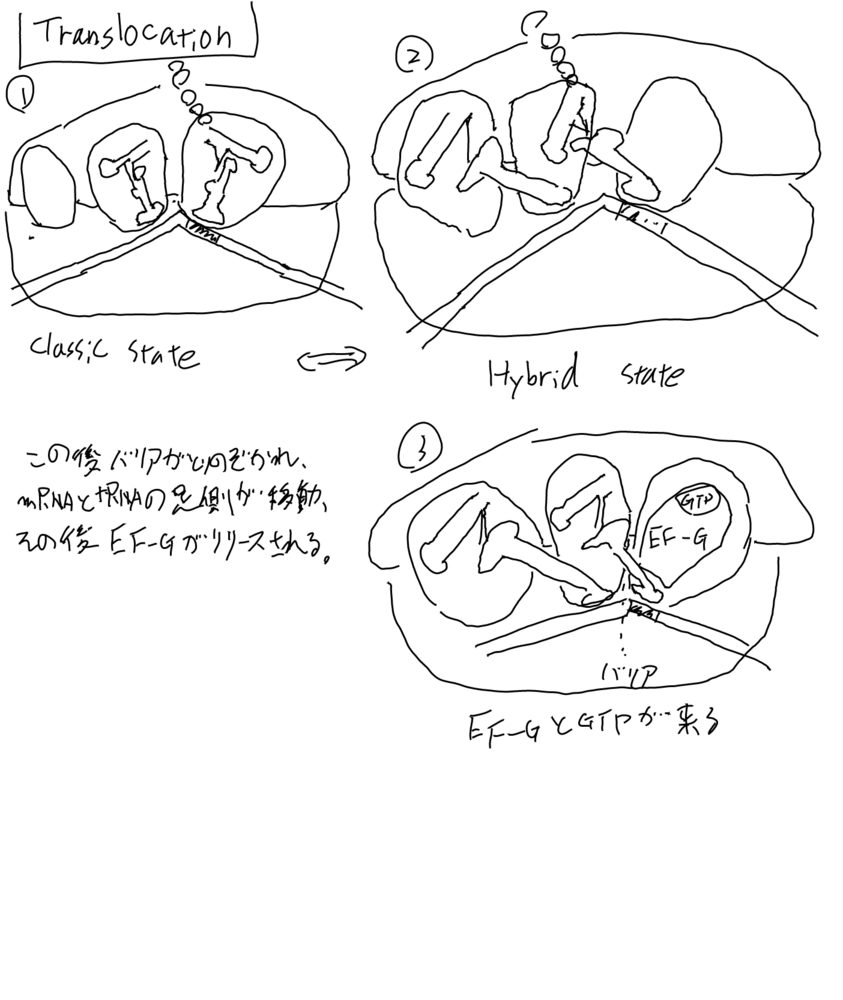 Translocation
①
②
classic state
⇔
Hybrid state
この後バリアがとりのぞかれ、
mRNAとtRNAの足側が移動、
その後EF-Gがリリースされる。
③
GTP
EF-G
バリア
EF-GとGTPが来る